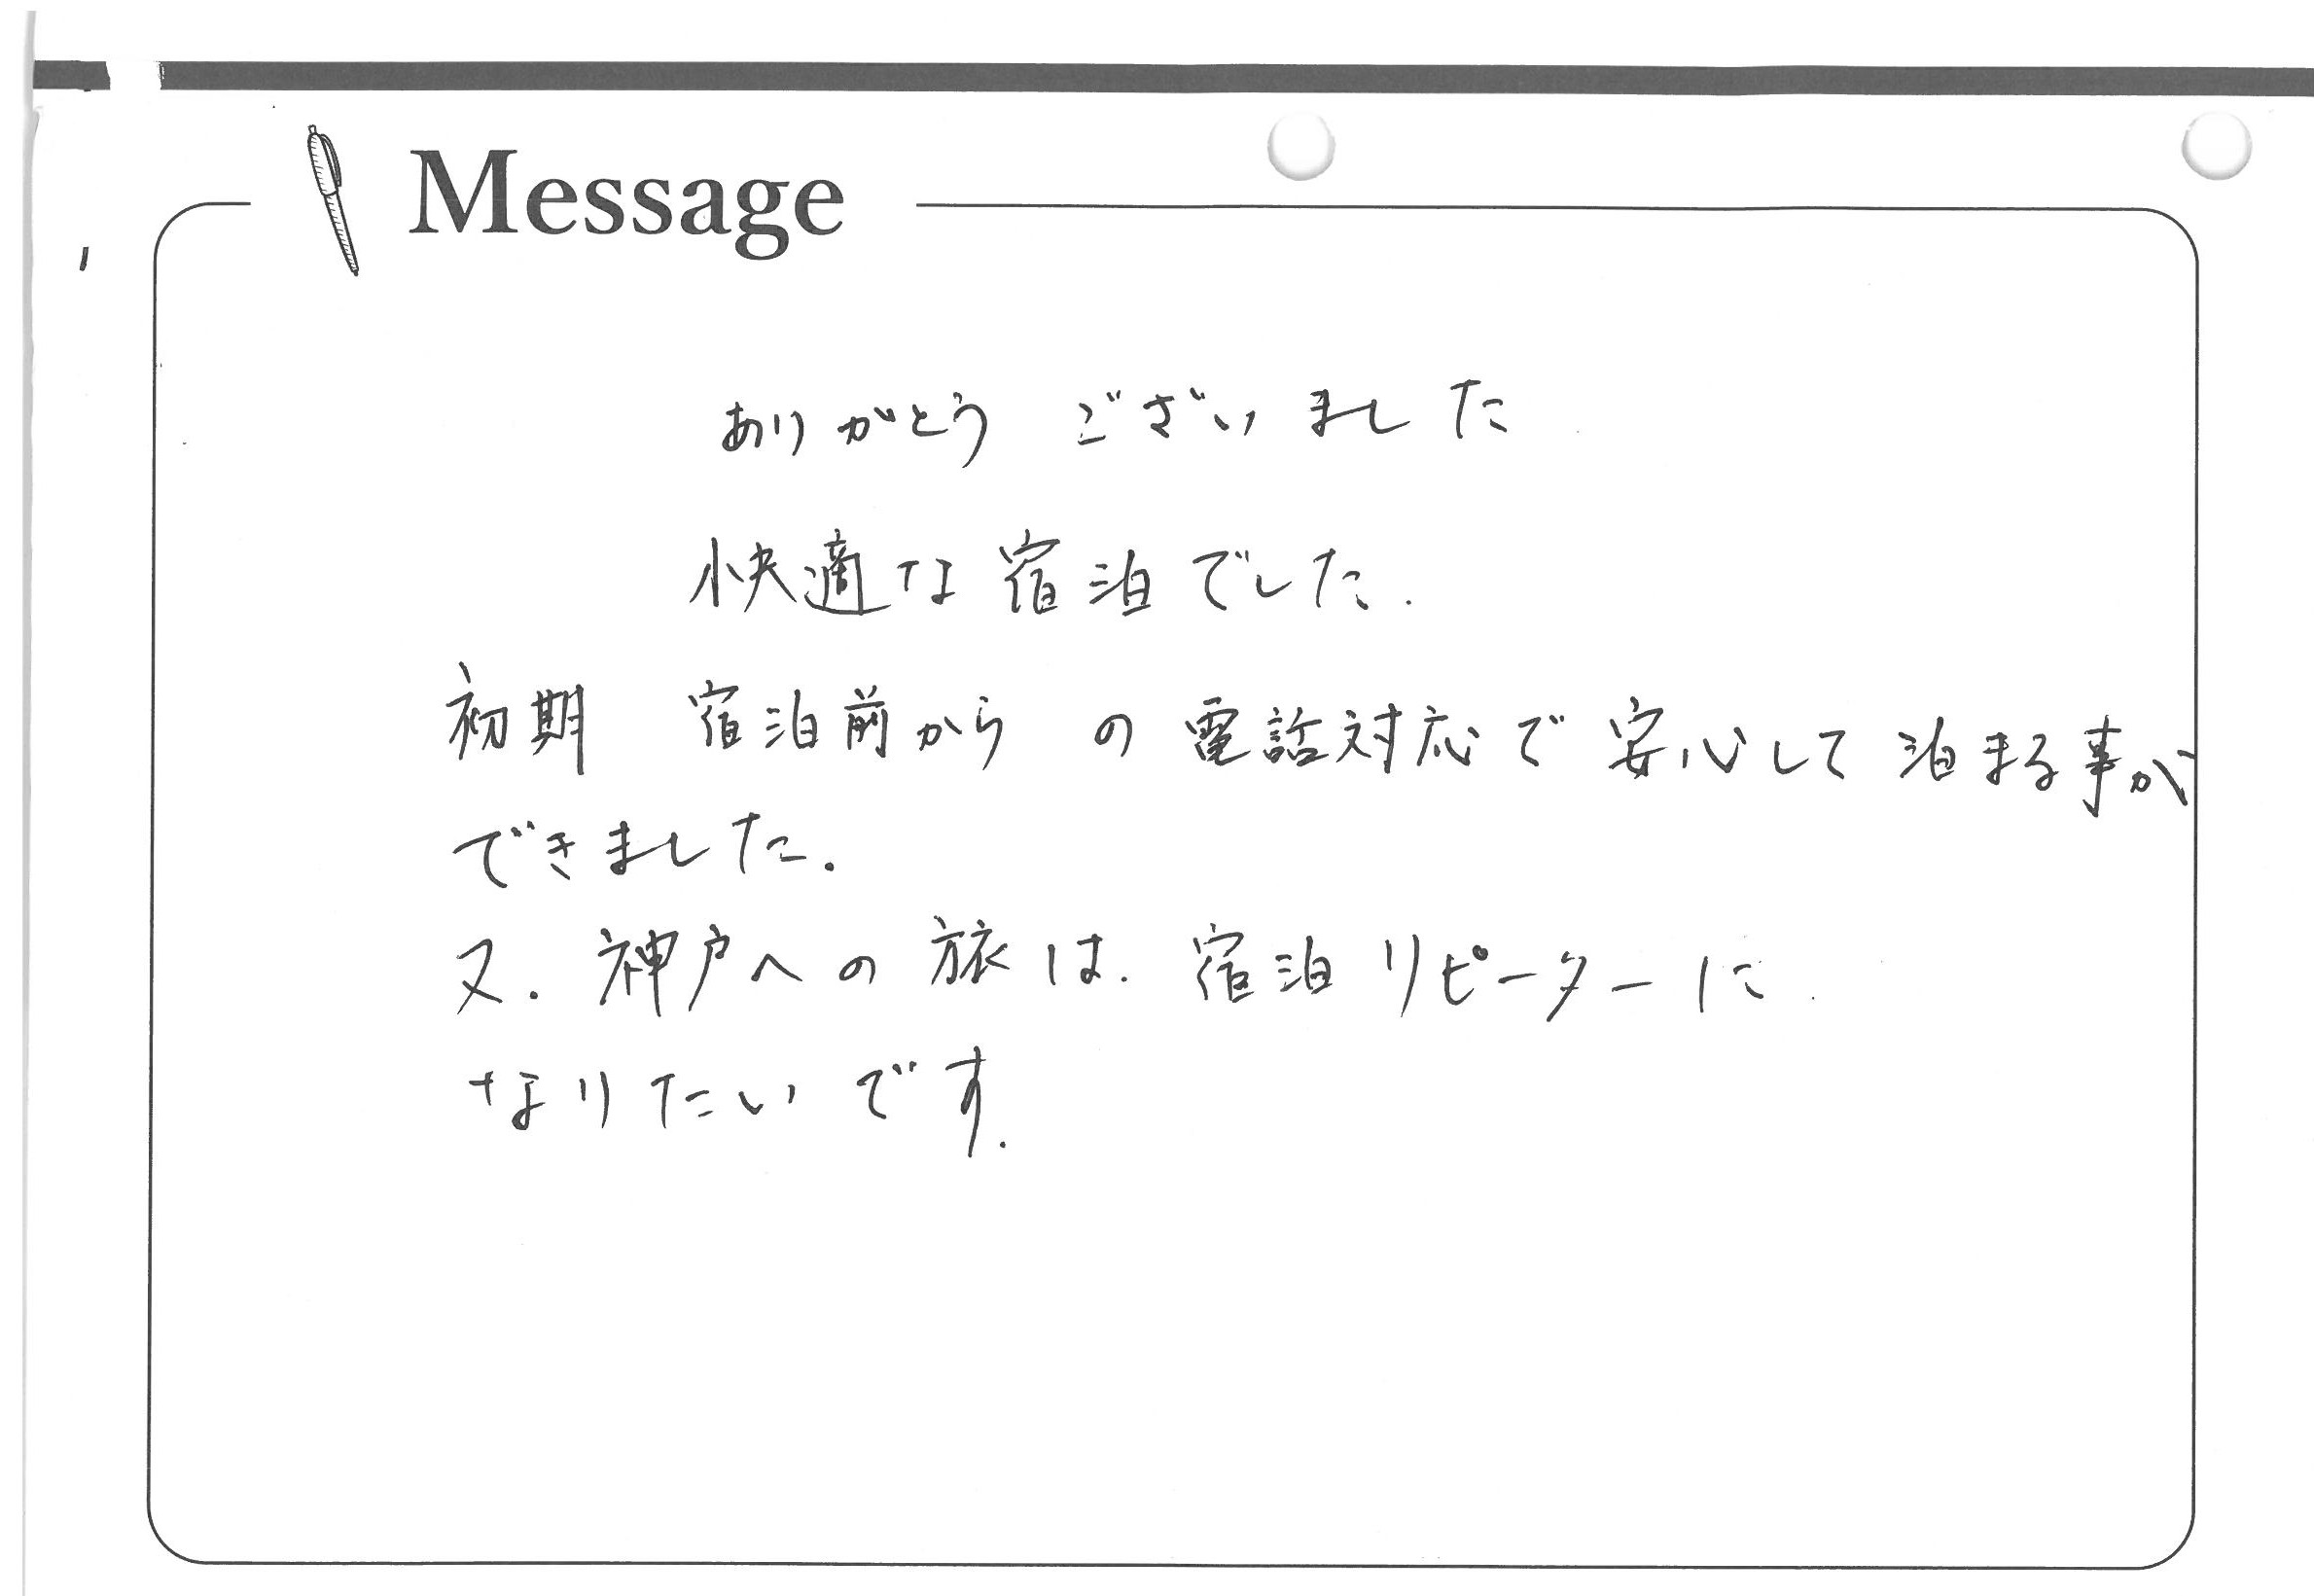 Message
ありがとう ございました
快適な宿泊でした.
初期 宿泊前から の電話対応で安心して泊まる事が
できました.
又.神戸への旅は.宿泊リピーターに
なりたいです.